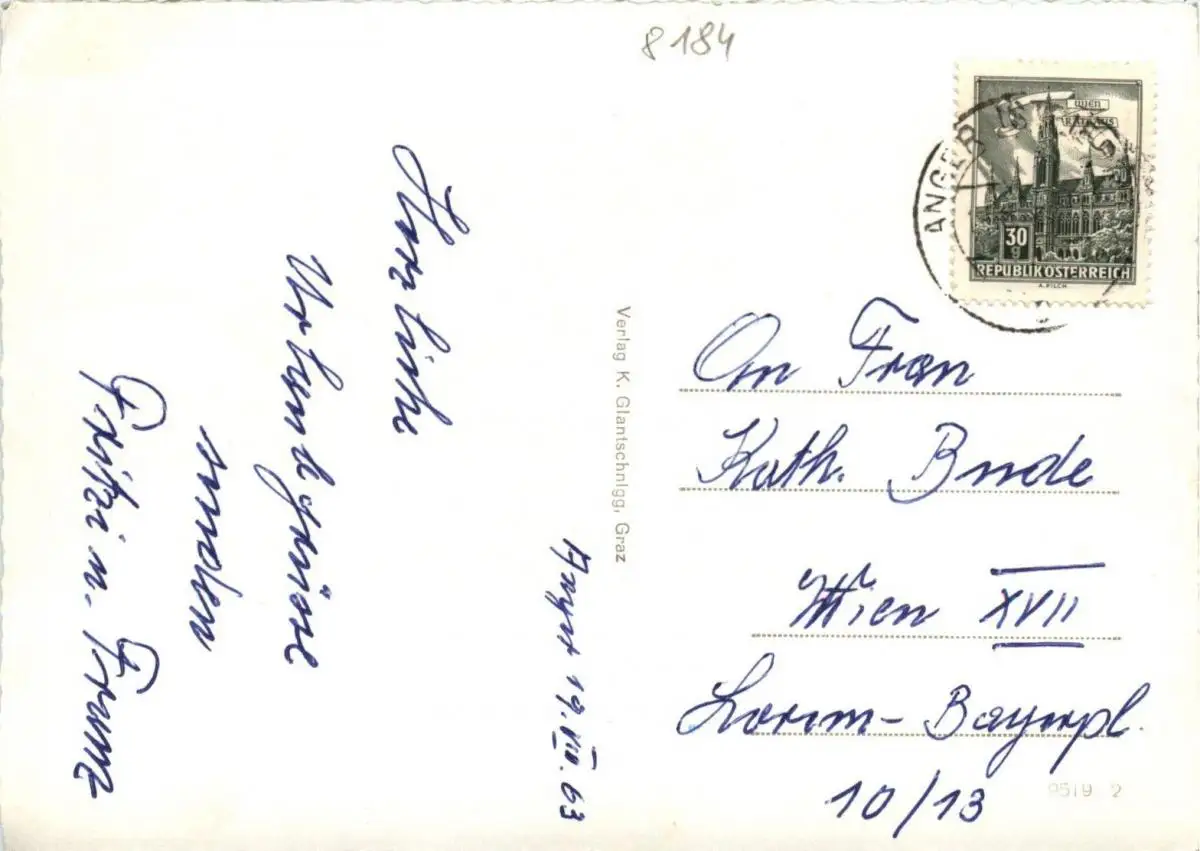 8184
Herzliche
Urlaubsgrüsse
senden
Fritzi u. Franz
Anger 19.VIII.63
Verlag K. Glantschnigg, Graz
ANGER
Wien
RATHAUS
30
g
REPUBLIK ÖSTERREICH
A. PILCH
An Frau
Kath. Bude
Wien XVII
Lorenz-Bayerpl.
10/13
9519 2